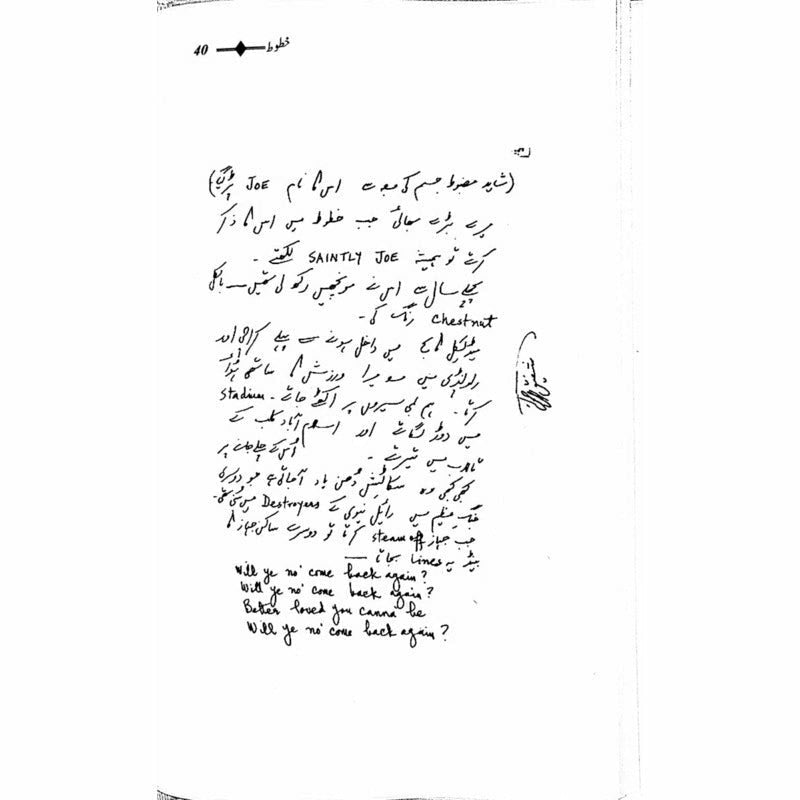 40 خطوط
(شاید مضبوط جسم کی وجہ سے اس کا نام JOE پڑ گیا)
میرے بڑے بھائی جب خطوط میں اس کا ذکر
کرتے تو ہمیشہ SAINTLY JOE لکھتے ۔
پچھلے سال سے اس نے مونچھیں رکھ لی تھیں — بالکل
chestnut رنگ کی ۔
میڈیکل کالج میں داخل ہونے سے پہلے کراچی اور
راولپنڈی میں وہ میرا ورزش کا ساتھی ہوا
کرتا ۔ ہم لمبی سیروں پر اکٹھے جاتے ۔ Stadium
میں دوڑ لگاتے اور اسلام آباد کلب کے
تالاب میں تیرتے ۔ اُس کے چلے جانے پر
کبھی کبھی وہ سکاٹش دُھن یاد آ جاتی ہے جو دوسری
جنگِ عظیم میں رائل نیوی کے Destroyers میں سُنی تھی۔
جب جہاز steam off کرتا تو دوسرے ساکن جہاز کا
بینڈ یہ Lines بجاتا —
Will ye no' come back again?
Will ye no' come back again?
Better loved you canna' be
Will ye no' come back again?
شفیق الرحمٰن